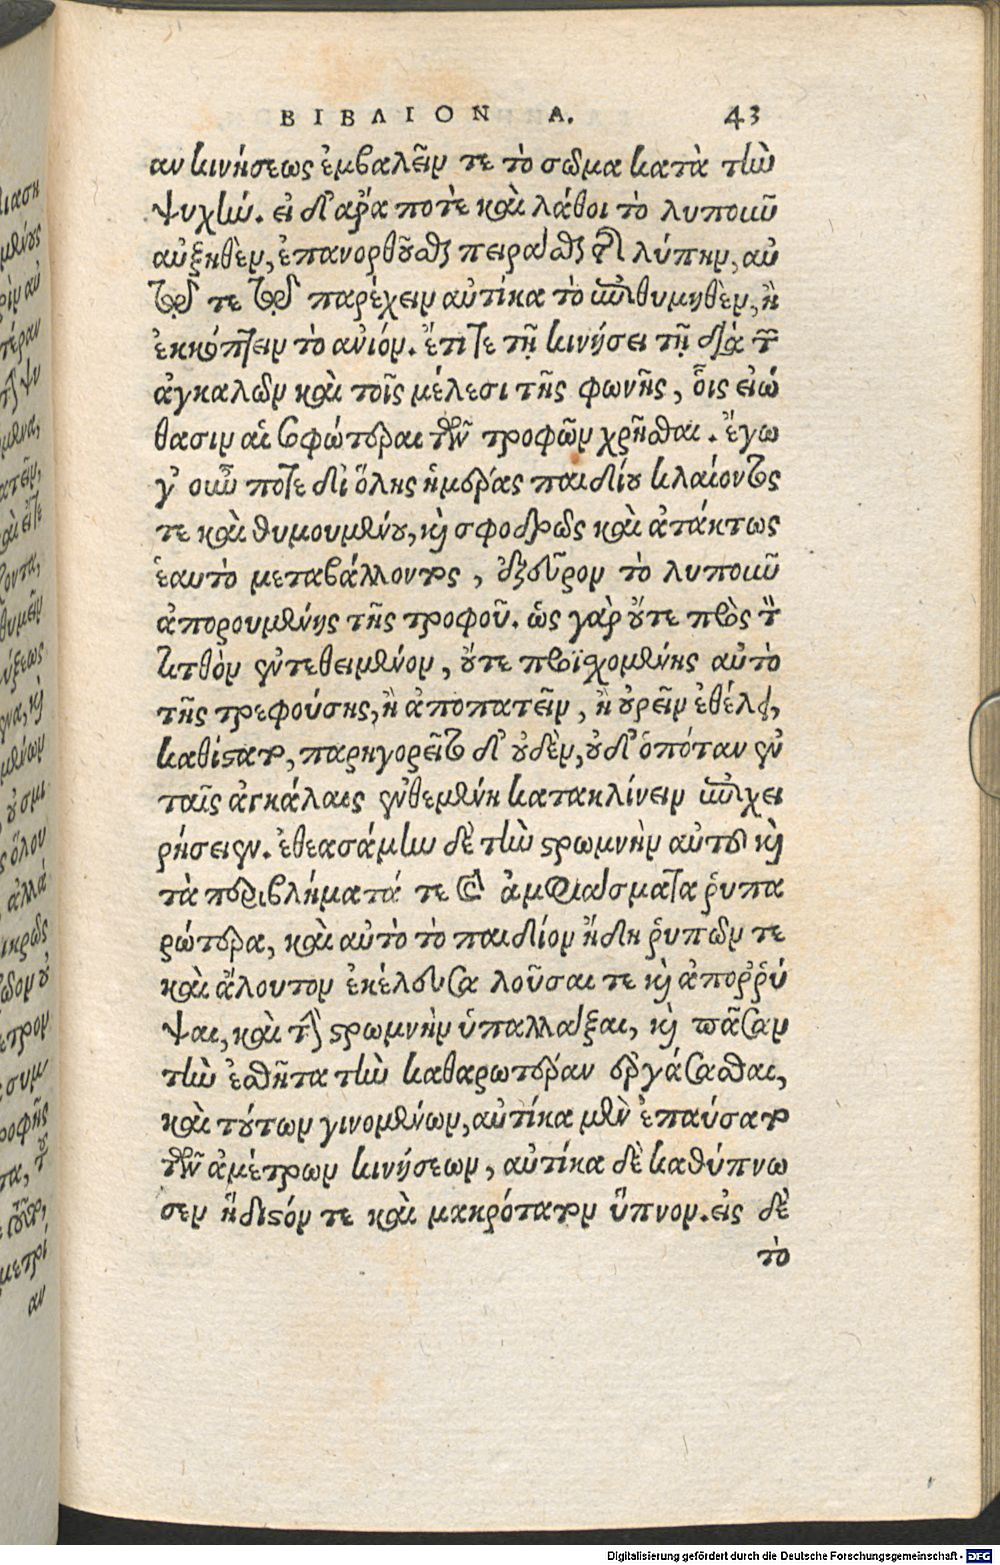 ΒΙΒΛΙΟΝ Α. 43
αν κινήσεως ἐμβαλεῖν τε τὸ σῶμα κατὰ τὴν
ψυχήν. εἰ δ' ἄρα ποτὲ καὶ λάθοι τὸ λυποῦν
αὐξηθὲν, ἐπανορθοῦσθαι πειρᾶσθαι τὴν λύπην, αὐ
τούς τε τοὺς παρέχειν αὐτίκα τὸ ἐπιθυμηθὲν, ἢ
ἐκκόπτειν τὸ ἀνιόν. ἔτι τε τῇ κινήσει τῇ διὰ τ
ἀγκαλῶν καὶ τοῖς μέλεσι τῆς φωνῆς, οἷς εἰώ
θασιν αἱ σοφώτεραι τῶν τροφῶν χρῆσθαι. ἔγω
γ' οὖν ποτε δι' ὅλης ἡμέρας παιδίου κλαίοντος
τε καὶ θυμουμένου, καὶ σφοδρῶς καὶ ἀτάκτως
ἑαυτὸ μεταβάλλοντος, ἐξεῦρον τὸ λυποῦν
ἀπορουμένης τῆς τροφοῦ. ὡς γὰρ οὔτε πρὸς τ
τιτθὸν ἐντεθειμένον, οὔτε προϊσχομένης αὐτὸ
τῆς τρεφούσης, ἢ ἀποπατεῖν, ἢ οὐρεῖν ἐθέλοι,
καθίστατο, παρηγορεῖτο δ' οὐδὲν, οὐδ' ὁπόταν ἐν
ταῖς ἀγκάλαις ἐνθεμένη κατακλίνειν ἐπιχει
ρήσειεν. ἐθεασάμην δὲ τὴν στρωμνὴν αὐτοῦ καὶ
τὰ περιβλήματά τε καὶ ἀμφιάσματα ῥυπα
ρώτερα, καὶ αὐτὸ τὸ παιδίον ἤδη ῥυπῶν τε
καὶ ἄλουτον ἐκέλευσα λοῦσαι τε καὶ ἀποῤῥύ
ψαι, καὶ τὴν στρωμνὴν ὑπαλλάξαι, καὶ πᾶσαν
τὴν ἐσθῆτα τὴν καθαρωτέραν ἐργάσασθαι,
καὶ τούτων γινομένων, αὐτίκα μὲν ἐπαύσατο
τῶν ἀμέτρων κινήσεων, αὐτίκα δὲ καθύπνω
σεν ἥδιστόν τε καὶ μακρότατον ὕπνον. εἰς δὲ
τὸ
Digitalisierung gefördert durch die Deutsche Forschungsgemeinschaft - DFG